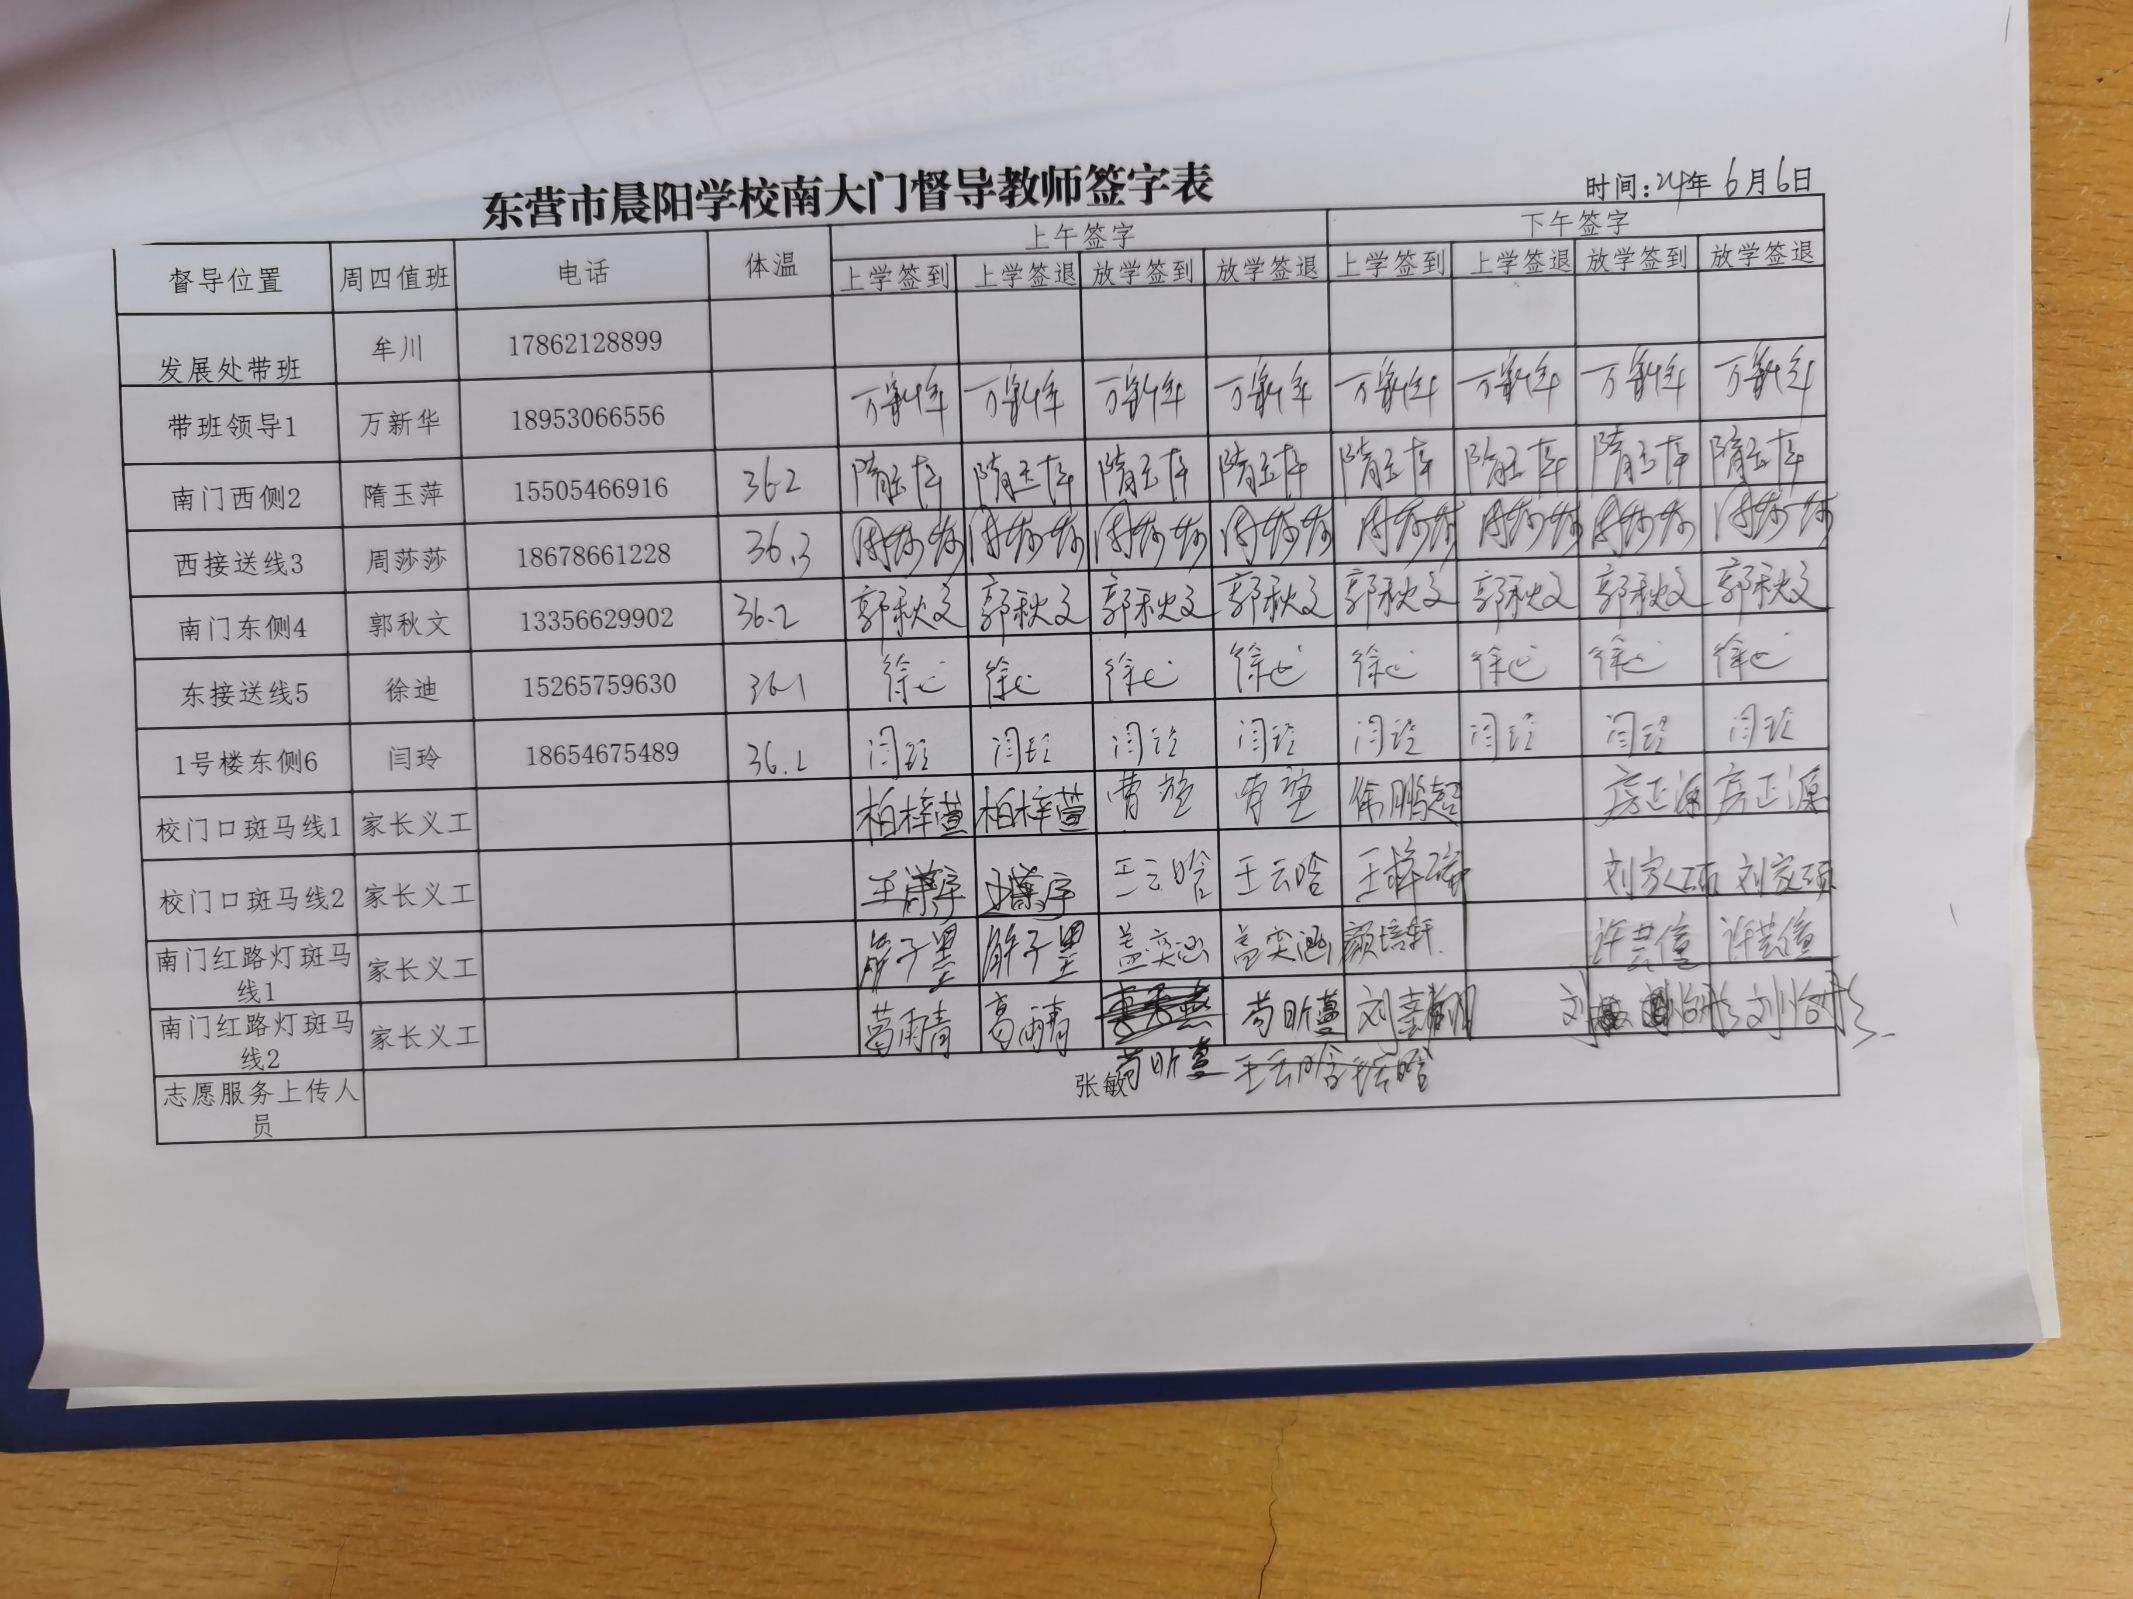 东营市晨阳学校南大门督导教师签字表
时间:24年 6月6日
督导位置 周四值班 电话 体温 上午签字 下午签字
上学签到 上学签退 放学签到 放学签退 上学签到 上学签退 放学签到 放学签退
发展处带班 牟川 17862128899
带班领导1 万新华 18953066556 万新华 万新华 万新华 万新华 万新华 万新华 万新华 万新华
南门西侧2 隋玉萍 15505466916 36.2 隋玉萍 隋玉萍 隋玉萍 隋玉萍 隋玉萍 隋玉萍 隋玉萍 隋玉萍
西接送线3 周莎莎 18678661228 36.3 周莎莎 周莎莎 周莎莎 周莎莎 周莎莎 周莎莎 周莎莎 周莎莎
南门东侧4 郭秋文 13356629902 36.2 郭秋文 郭秋文 郭秋文 郭秋文 郭秋文 郭秋文 郭秋文 郭秋文
东接送线5 徐迪 15265759630 36.1 徐迪 徐迪 徐迪 徐迪 徐迪 徐迪 徐迪 徐迪
1号楼东侧6 闫玲 18654675489 闫玲 闫玲 闫玲 闫玲 闫玲 闫玲 闫玲 闫玲
校门口斑马线1 家长义工 柏梓萱 柏梓萱 徐鹏超 房正源 房正源
校门口斑马线2 家长义工 王云晗 王云晗
南门红路灯斑马线1 家长义工 解子墨 解子墨 盖奕涵 盖奕涵 颜培轩
南门红路灯斑马线2 家长义工 葛雨晴 葛雨晴 苟昕蔓
苟昕蔓 王云晗
志愿服务上传人员 张敏